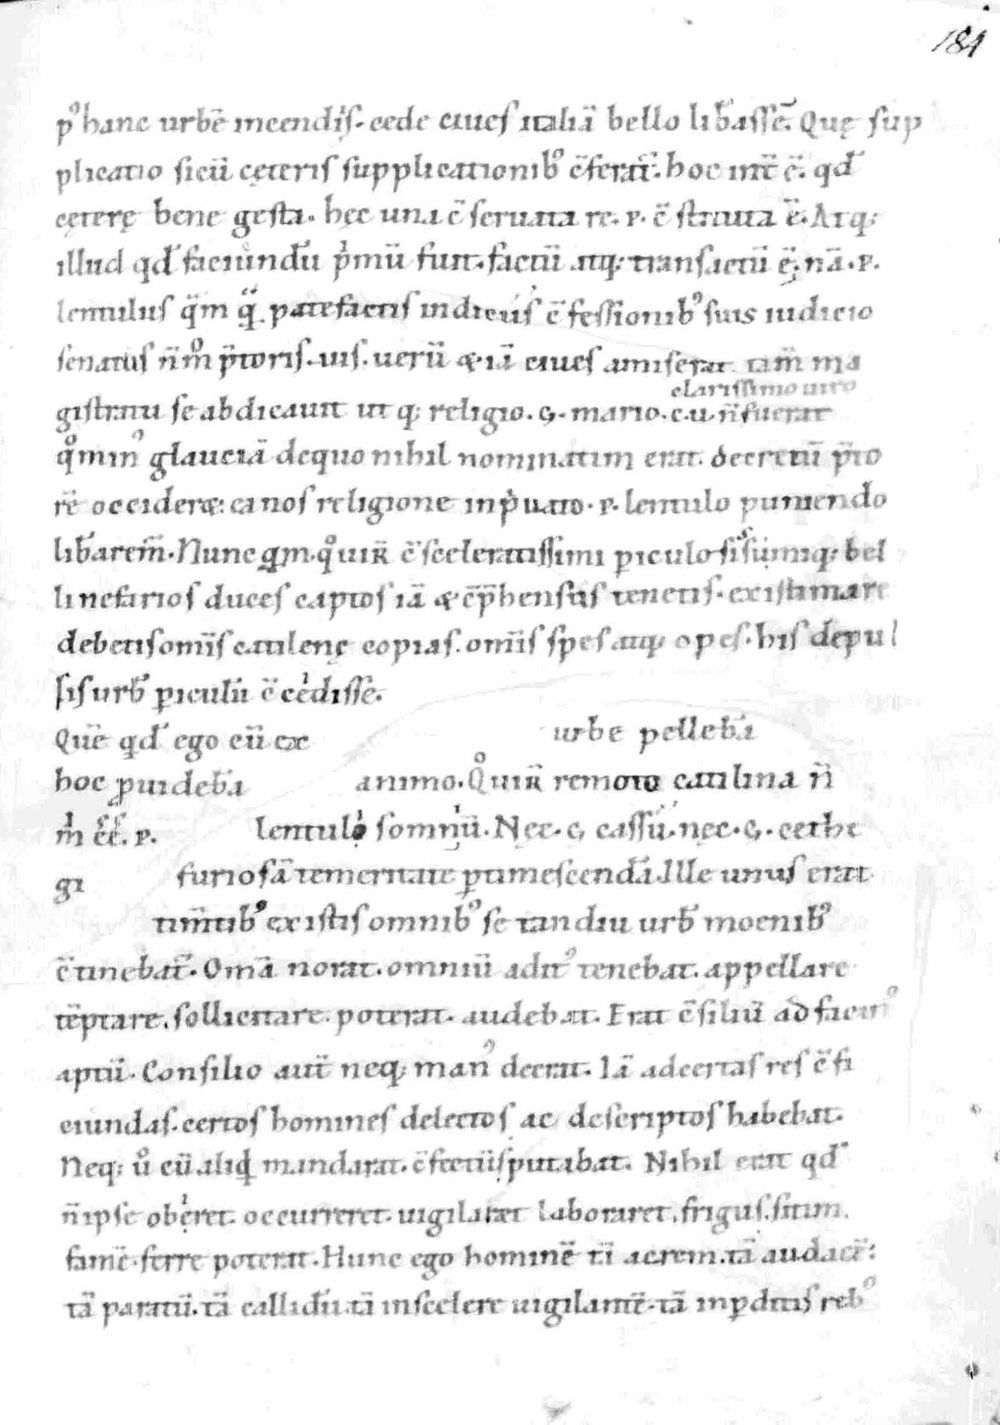 184
pꝰ hanc urbē incendiis. cede ciues italiā bello liƀassē. Quę sup
plicatio si cū cęteris supplicationibꝰ c̄ferat᷑. hoc int̄ ē. qđ
cęterę bene gesta. hęc una c̄seruata re. p. c̄stituta ē. Atq;
illud qđ faciundū p̍mū fuit. factū atq; transactū ē; nā. P.
lentulus q̄m q̄. patefactis indiciis c̄fessionibꝰ suis iudicio
senatus n̄ mº p̄toris. ius. uerū &iā ciues amiserat tam̄ ma
clarissimo uiro
gistratu se abdicauit ut q; religio. G. mario. c. u. n̄ fuerat
qº minꝰ glauciā de quo nihil nominatim erat decretū p̄to
rē occideret: ea nos religione in p̍uato. P. lentulo puniendo
liƀarem̄. Nunc qm̄. qºuiꝶ c̄sceleratissimi ꝑiculosissimiq; bel
li nefarios duces captos iā & c̄p̄hensus tenetis. existimare
debetis om̄s catilenę copias. om̄s spes atq; opes. his depul
sis urƀ ꝑiculū c̄cidisse.
Quē qđ ego cū ex urbe pellebā
hoc ꝓuidebā animo. Quiꝶ remoto catilina n̄
m̍ ēē. P. lentuli somnū. Nec. G cassii. nec. G. cethe
gi furiosā temeritatē ꝑtimescendā. Ille unus erat
tim̄dꝰ ex istis omnibꝰ se tandiu urƀ moenibꝰ
c̄tinebat᷑. Om̄a norat. omniū aditꝰ tenebat. appellare
tēptare. sollicitare. poterat. audebat. Erat c̄siliū ad facinꝰ
aptū. Consilio aut̄ neq; manꝰ deerat. Iā ad certas res c̄fi
ciundas. certos homines delectos ac descriptos habebat.
Neq; uº cū aliqđ mandarat. c̄fectū putabat. Nihil erat qđ
n̄ ipse obiret. occurreret. uigilaret laboraret. frigus. sitim.
famē. ferre poterat. Hunc ego hominē tā acrem. tā audacē:
tā paratū. tā callidū. tā in scelere uigilantē. tā in ꝑditis rebꝰ